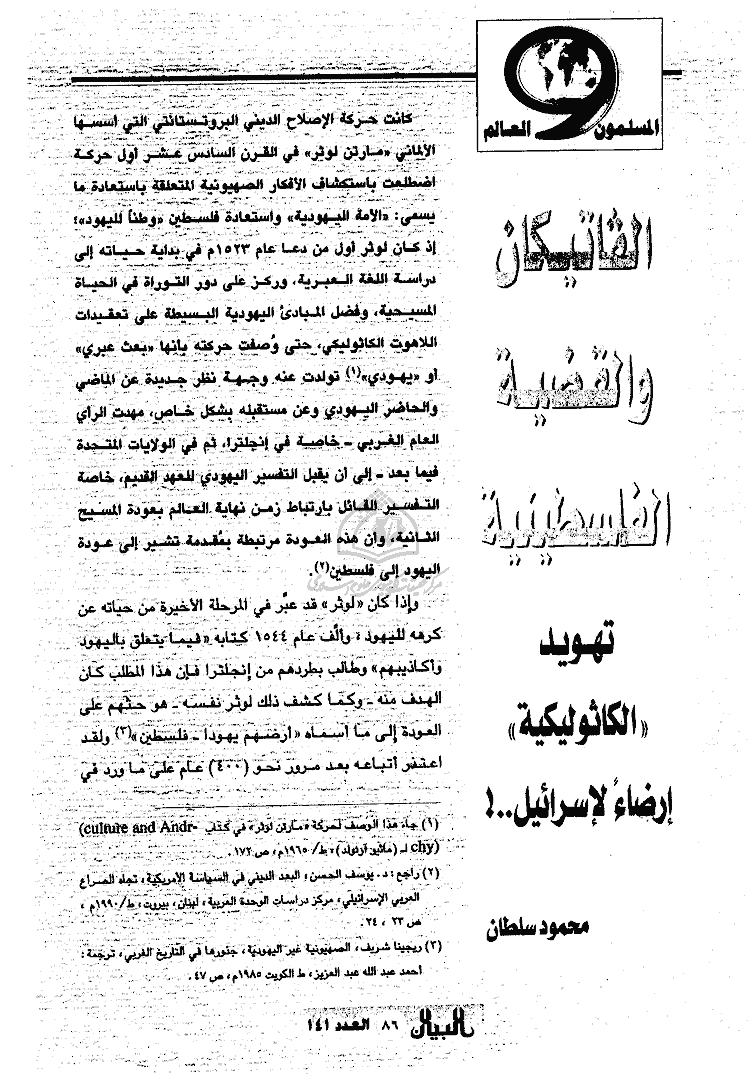 المسلمون و العالم
الفاتيكان
والقضية
الفلسطينية
تهويد
«الكاثوليكية»
إرضاءً لإسرائيل..!
محمود سلطان
كانت حركة الإصلاح الديني البروتستانتي التي أسسها
الألماني «مارتن لوثر» في القرن السادس عشر أول حركة
اضطلعت باستكشاف الأفكار الصهيونية المتعلقة باستعادة ما
يسمى: «الأمة اليهودية» واستعادة فلسطين «وطناً لليهود»؛
إذ كان لوثر أول من دعا عام ١٥٢٣م في بداية حياته إلى
دراسة اللغة العبرية، وركز على دور التوراة في الحياة
المسيحية، وفضل المبادئ اليهودية البسيطة على تعقيدات
اللاهوت الكاثوليكي، حتى وُصفت حركته بأنها «بعث عبري»
أو «يهودي»(١) تولدت عنه وجهة نظر جديدة عن الماضي
والحاضر اليهودي وعن مستقبله بشكل خاص، مهدت الرأي
العام الغربي ـ خاصة في إنجلترا، ثم في الولايات المتحدة
فيما بعد ـ إلى أن يقبل التفسير اليهودي للعهد القديم، خاصة
التفسير القائل بارتباط زمن نهاية العالم بعودة المسيح
الثانية، وأن هذه العودة مرتبطة بمُقدمة تشير إلى عودة
اليهود إلى فلسطين(٢).
وإذا كان «لوثر» قد عبَّر في المرحلة الأخيرة من حياته عن
كرهه لليهود؛ وألَّف عام ١٥٤٤ كتابه «فيما يتعلق باليهود
وأكاذيبهم» وطالب بطردهم من إنجلترا فإن هذا المطلب كان
الهدف منه ـ وكما كشف ذلك لوثر نفسه ـ هو حثهم على
العودة إلى ما أسماه «أرضهم يهودا ـ فلسطين»(٣) ولقد
اعتفر أتباعه بعد مرور نحو (٤٠٠) عام على ما ورد في
(١) جاء هذا الوصف لحركة «مارتن لوثر» في كتاب (culture and Andr-
chy) لـ (ماثيو آرنولد)، ط/ ١٩٦٥م، ص ١٧٢.
(٢) راجع: د. يوسف الحسن، البعد الديني في السياسة الأمريكية، تجاه الصراع
العربي الإسرائيلي، مركز دراسات الوحدة العربية، لبنان، بيروت، ط/ ١٩٩٠م،
ص ٢٣ ، ٢٤ .
(٣) ريجينا شريف، الصهيونية غير اليهودية، جذورها في التاريخ الغربي، ترجمة:
أحمد عبد الله عبد العزيز، ط الكويت ١٩٨٥م، ص ٤٧ .
البيان ٨٦ العدد ١٤١